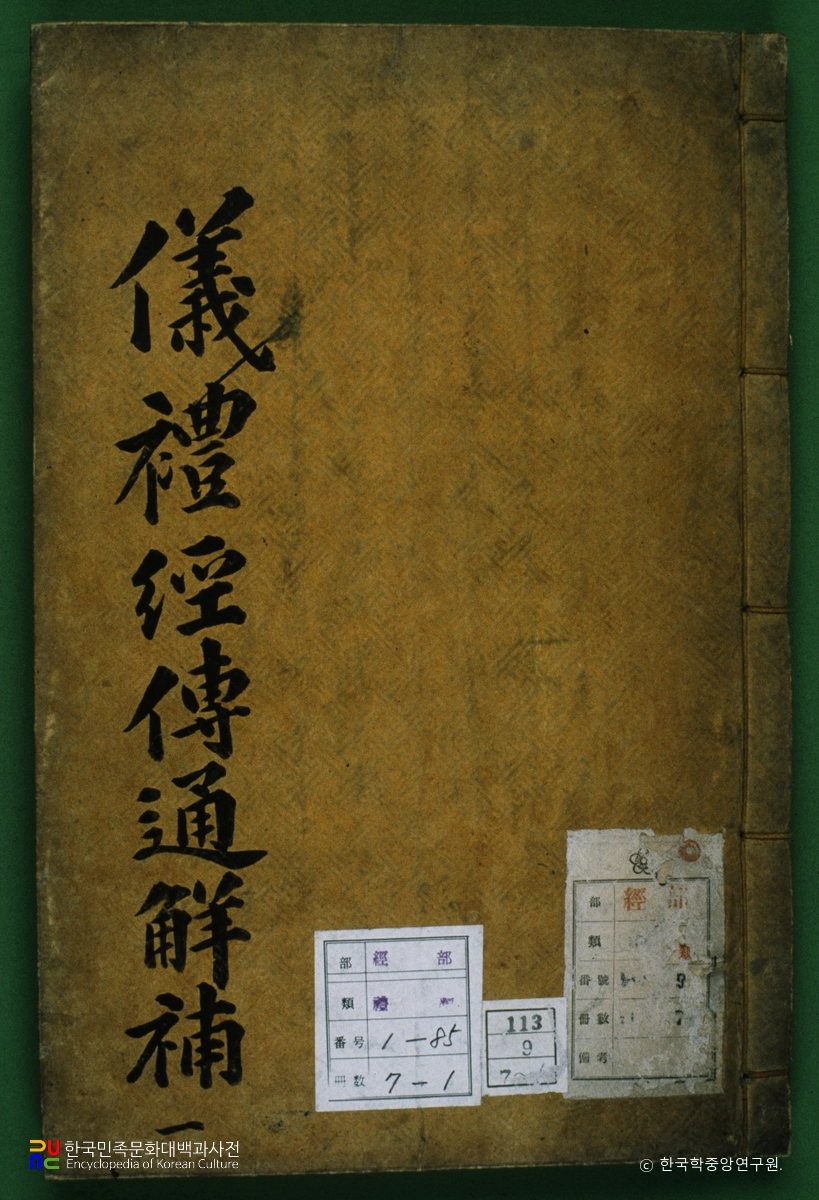 儀禮經傳通解補 一
部 經 部
類 禮 類
番号 1-85
冊数 7-1
113
9
7
部 經 部
類 類
番號 9
冊數 7
備考
한국민족문화대백과사전
Encyclopedia of Korean Culture
ⓒ 한국학중앙연구원.